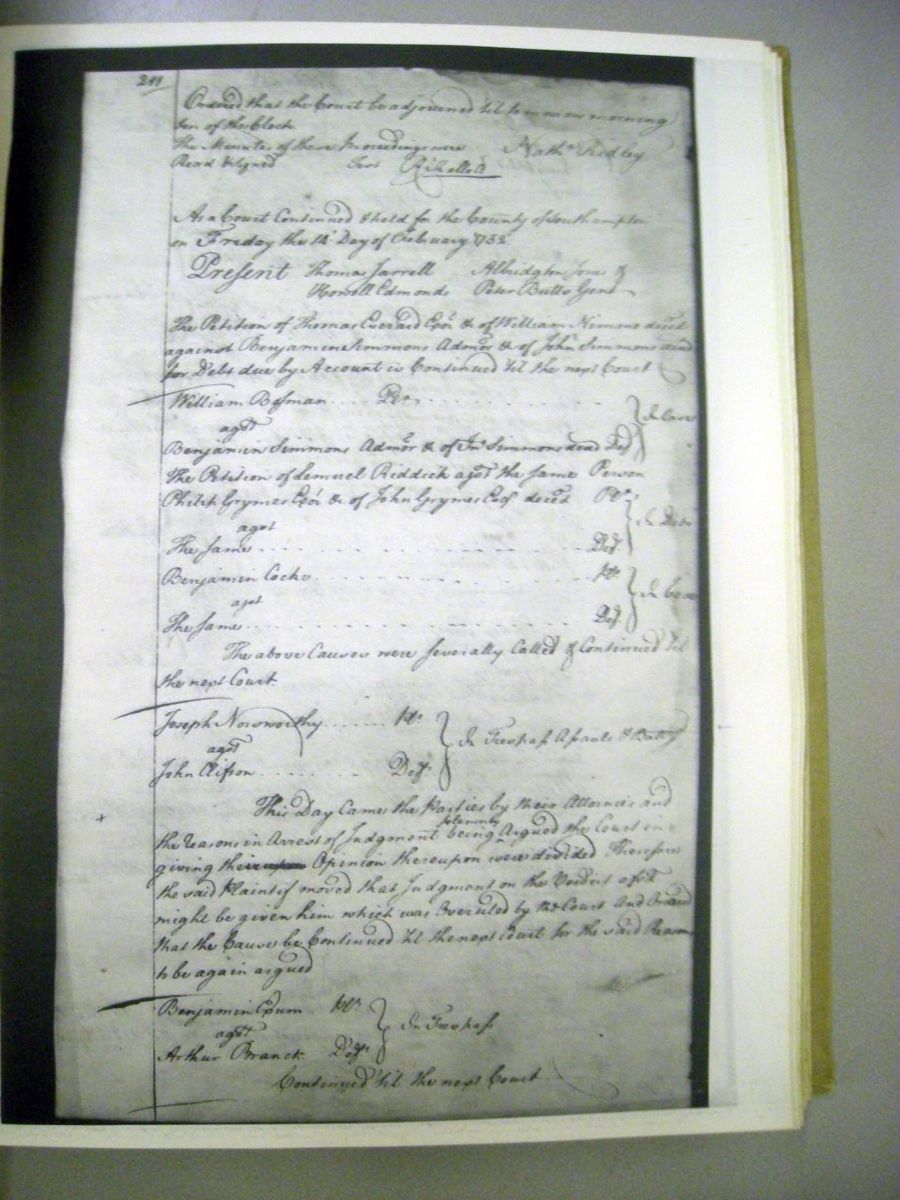 211
Ordered that the Court be adjourned 'til to morrow morning
ten of the Clock
The Minutes of these Proceedings were Nathl. Ridley
Read & Signed Test
At a Court Continued & held for the County of Southampton
on Friday the 14 Day of February 1752
Present Thomas Jarrell Albridgton Jones &
Howell Edmonds Peter Butts Gent
The Petition of Thomas Everard Exor. &c of William Nimmo decd
against Benjamin Simmons Admor. &c of John Simmons decd
for Debt due by Account is Continued 'til the next Court
William Besman Plt.
agst In Case
Benjamin Simmons Admor &c of Jno. Simmons decd Deft
The Petition of Lemuel Riddick agst the same Person
Philip Grymes Exor. &c of John Grymes Esqr. decd Plt.
agst In Debt
The Same Deft.
Benjamin Cocke Plt.
agst In Case
The Same Deft.
The above Causes were severally Called & Continued 'til
the next Court.
Joseph Norsworthy Plt.
agst In Trespass Assault & Battery
John Clifson Deft.
This Day Came the Parties by their Attornies and
solemnly
the Reasons in Arrest of Judgment being Argued the Court in
giving their Opinion thereupon were divided Therefore
the said Plaintif moved that Judgment on the Verdict afsd
might be given him which was Overuled by the Court And Ordered
that the Cause be Continued 'til the next Court for the said Reasons
to be again argued
Benjamin Exum Plt.
agst In Trespass
Arthur Branch Deft.
Continued 'til the next Court